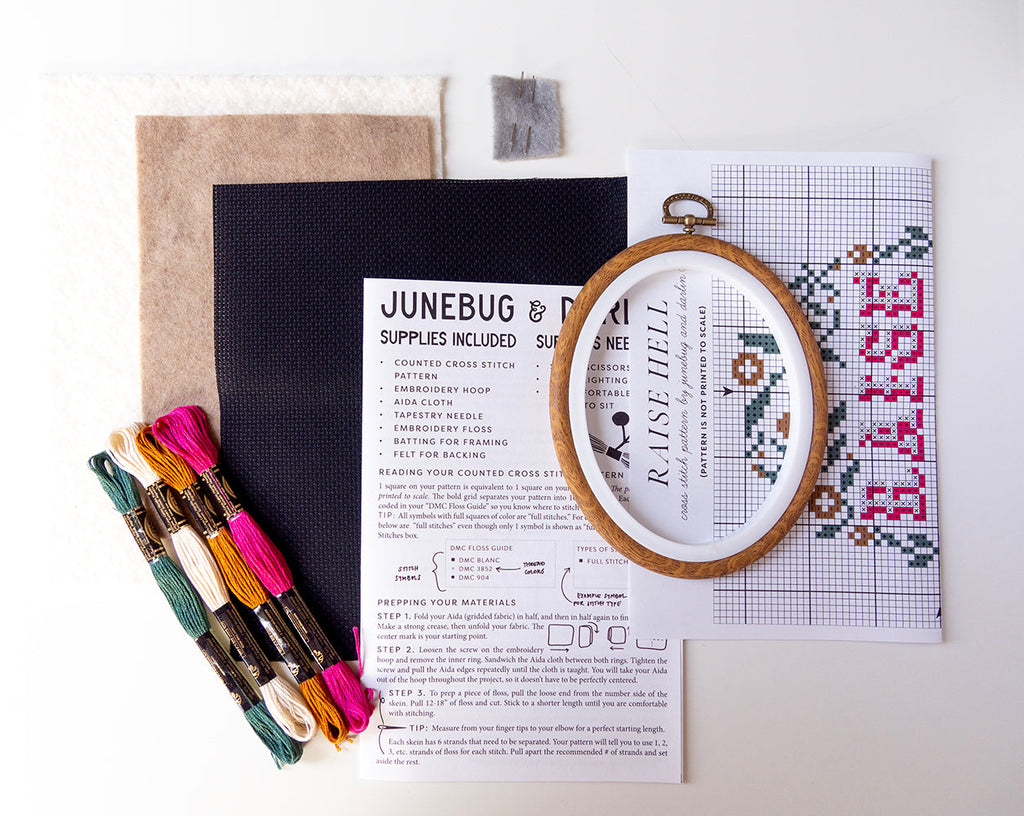 JUNEBUG &
SUPPLIES INCLUDED
COUNTED CROSS STITCH
PATTERN
EMBROIDERY HOOP
AIDA CLOTH
TAPESTRY NEEDLE
EMBROIDERY FLOSS
BATTING FOR FRAMING
FELT FOR BACKING
TO SIT
READING YOUR COUNTED CROSS
1 square on your pattern is equivalent to 1 square on your
printed to scale. The bold grid separates your pattern into
coded in your “DMC Floss Guide” so you know where to stitch
TIP: All symbols with full squares of color are “full stitches.” For
below are “full stitches” even though only 1 symbol is shown as “full
Stitches box.
DMC FLOSS GUIDE
DMC BLANC
DMC 3852
DMC 904
STITCH
SYMBOLS
THREAD
COLORS
TYPES OF
FULL STITCH
EXAMPLE SYMBOL
FOR STITCH TYPE
PREPPING YOUR MATERIALS
STEP 1. Fold your Aida (gridded fabric) in half, and then in half again to
Make a strong crease, then unfold your fabric. The
center mark is your starting point.
STEP 2. Loosen the screw on the embroidery
hoop and remove the inner ring. Sandwich the Aida cloth between both rings. Tighten the
screw and pull the Aida edges repeatedly until the cloth is taught. You will take your Aida
out of the hoop throughout the project, so it doesn't have to be perfectly centered.
STEP 3. To prep a piece of floss, pull the loose end from the number side of the
skein. Pull 12-18" of floss and cut. Stick to a shorter length until you are comfortable
with stitching.
TIP: Measure from your finger tips to your elbow for a perfect starting length.
Each skein has 6 strands that need to be separated. Your pattern will tell you to use 1, 2,
3, etc. strands of floss for each stitch. Pull apart the recommended # of strands and set
aside the rest.
RAISE HELL
cross stitch pattern by junebug and darlin
(PATTERN IS NOT PRINTED TO SCALE)
RAISE